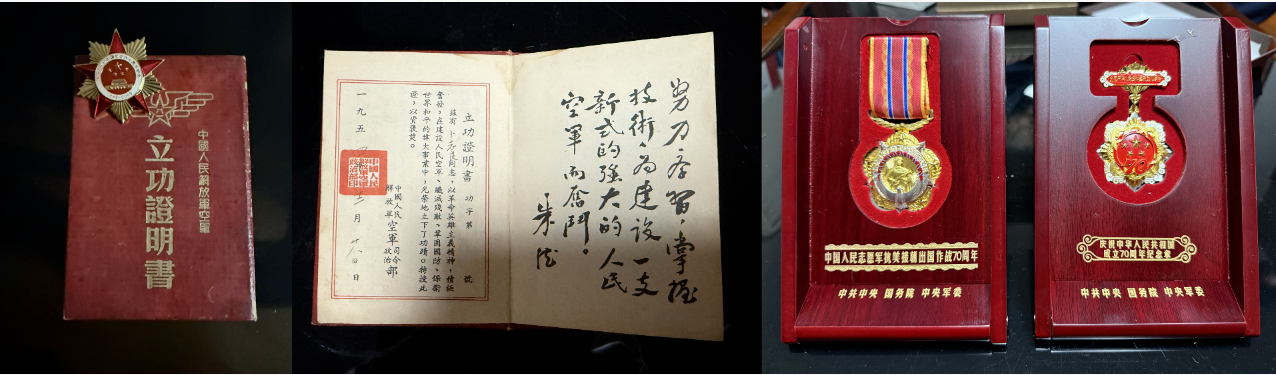 中國人民解放軍空軍
立功證明書
努力学習,掌握
技術,为建設一支
新式的強大的人民
空軍而奮鬥!
朱德
立功證明書 功字第 號
茲有同志,以革命英雄主義精神,積極
奮發,在建設人民空軍、殲滅殘敵、鞏固國防、保衛
世界和平的偉大事業中,光榮地立下了功蹟。特授此
證,以資褒獎。
中國人民
解放軍空軍司令
政治部
一九五 月 日
中国人民志愿军抗美援朝出国作战70周年
中共中央 国务院 中央军委
70
庆祝中华人民共和国
成立70周年纪念章
中共中央 国务院 中央军委